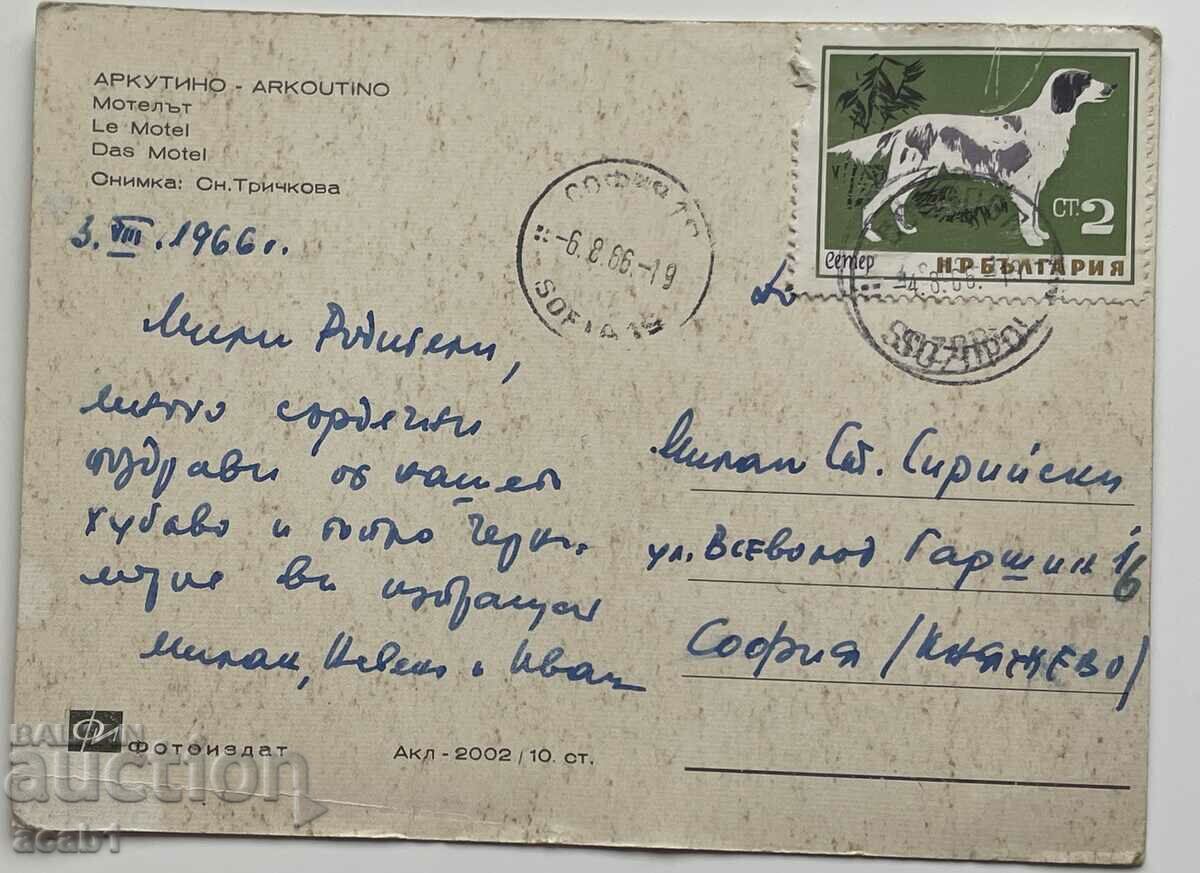 АРКУТИНО - ARKOUTINO
Мотелът
Le Motel
Das Motel
Снимка: Сн.Тричкова
3.VIII.1966 г.
Мили Родители,
много сърдечни
поздрави от нашето
хубаво и топло Черно-
морие ви изпращат
Милан, Невена и Иван
СОФИЯ
-6.8.66.-19
SOFIA
Сетер
СТ. 2
НР БЪЛГАРИЯ
SOZOPOL
До
Милан Ст. Сирийски
ул. Всеволод Гаршин 16
София /Княжево/
Фотоиздат
Акл-2002/10. ст.
BALKAN
auction
acab1